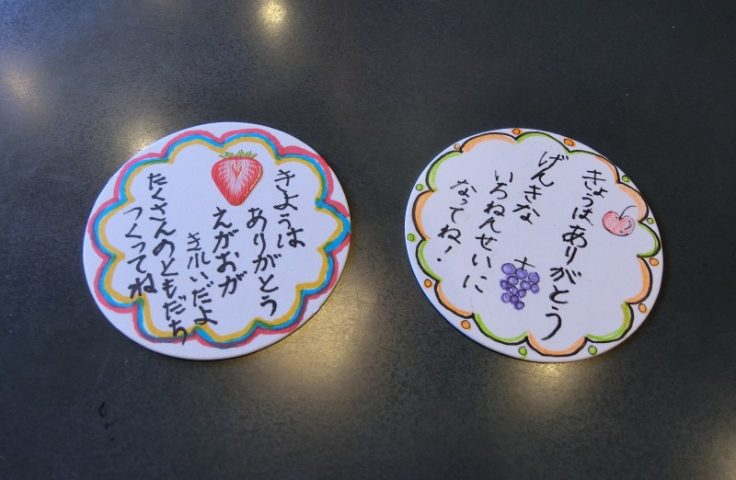 きょうは
ありがとう
えがおが
きれいだよ
たくさんのともだち
つくってね
きょうはありがとう
げんきな
いちねんせいに
なってね!